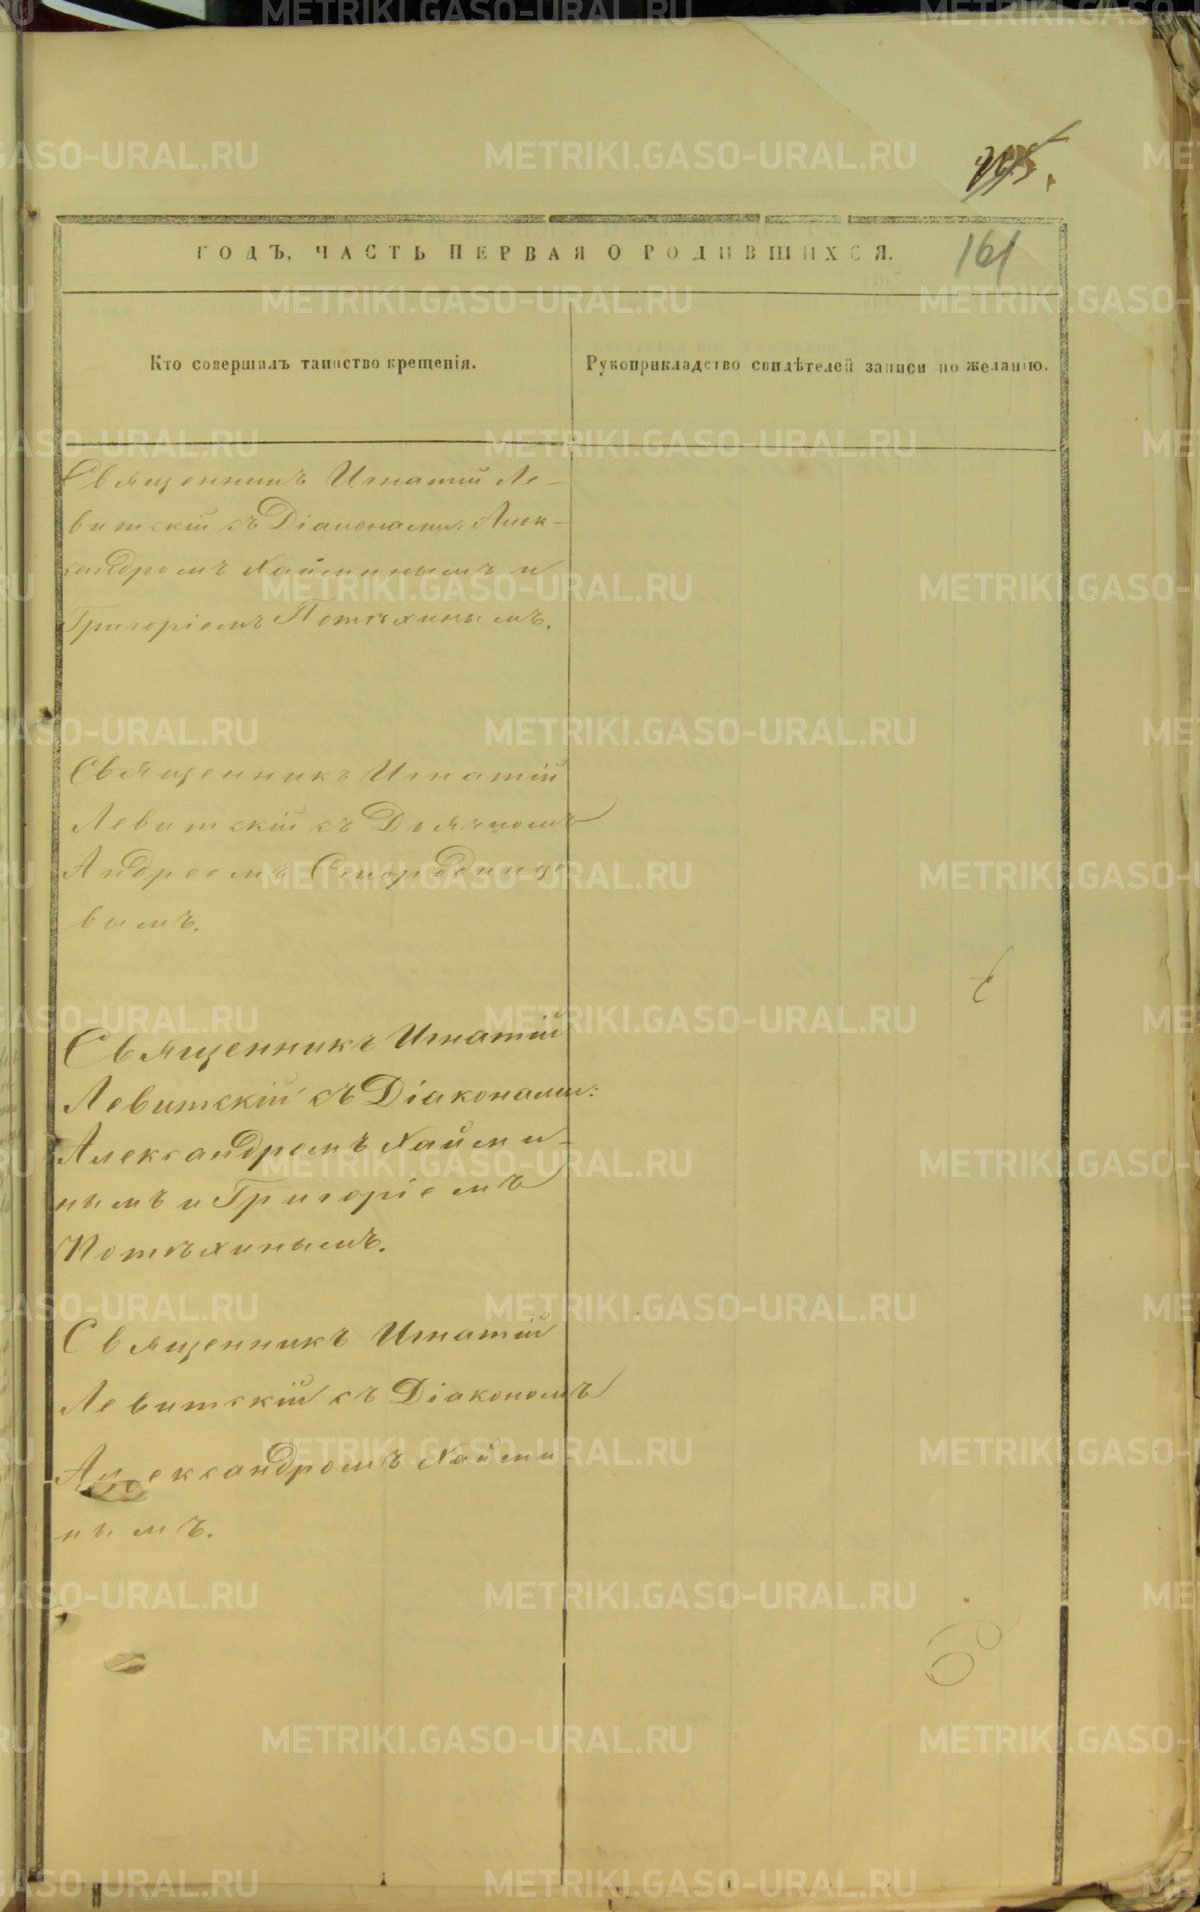 161
ГОДЪ, ЧАСТЬ ПЕРВАЯ О РОДИВШИХСЯ.
Кто совершилъ таинство крещенія.
Рукоприкладство свидѣтелей записи по желанію.
Священникъ Игнатій Ле-
витскій съ Діаконами: Алек-
сандромъ Хайминымъ и
Григоріемъ Потѣхинымъ.
Священникъ Игнатій
Левитскій съ Дьячкомъ
Андреемъ
вымъ.
Священникъ Игнатій
Левитскій съ Діаконами:
Александромъ Хайми-
нымъ и Григоріемъ
Потѣхинымъ.
Священникъ Игнатій
Левитскій съ Діакономъ
Александромъ Хайми
нымъ.
METRIKI.GASO-URAL.RU